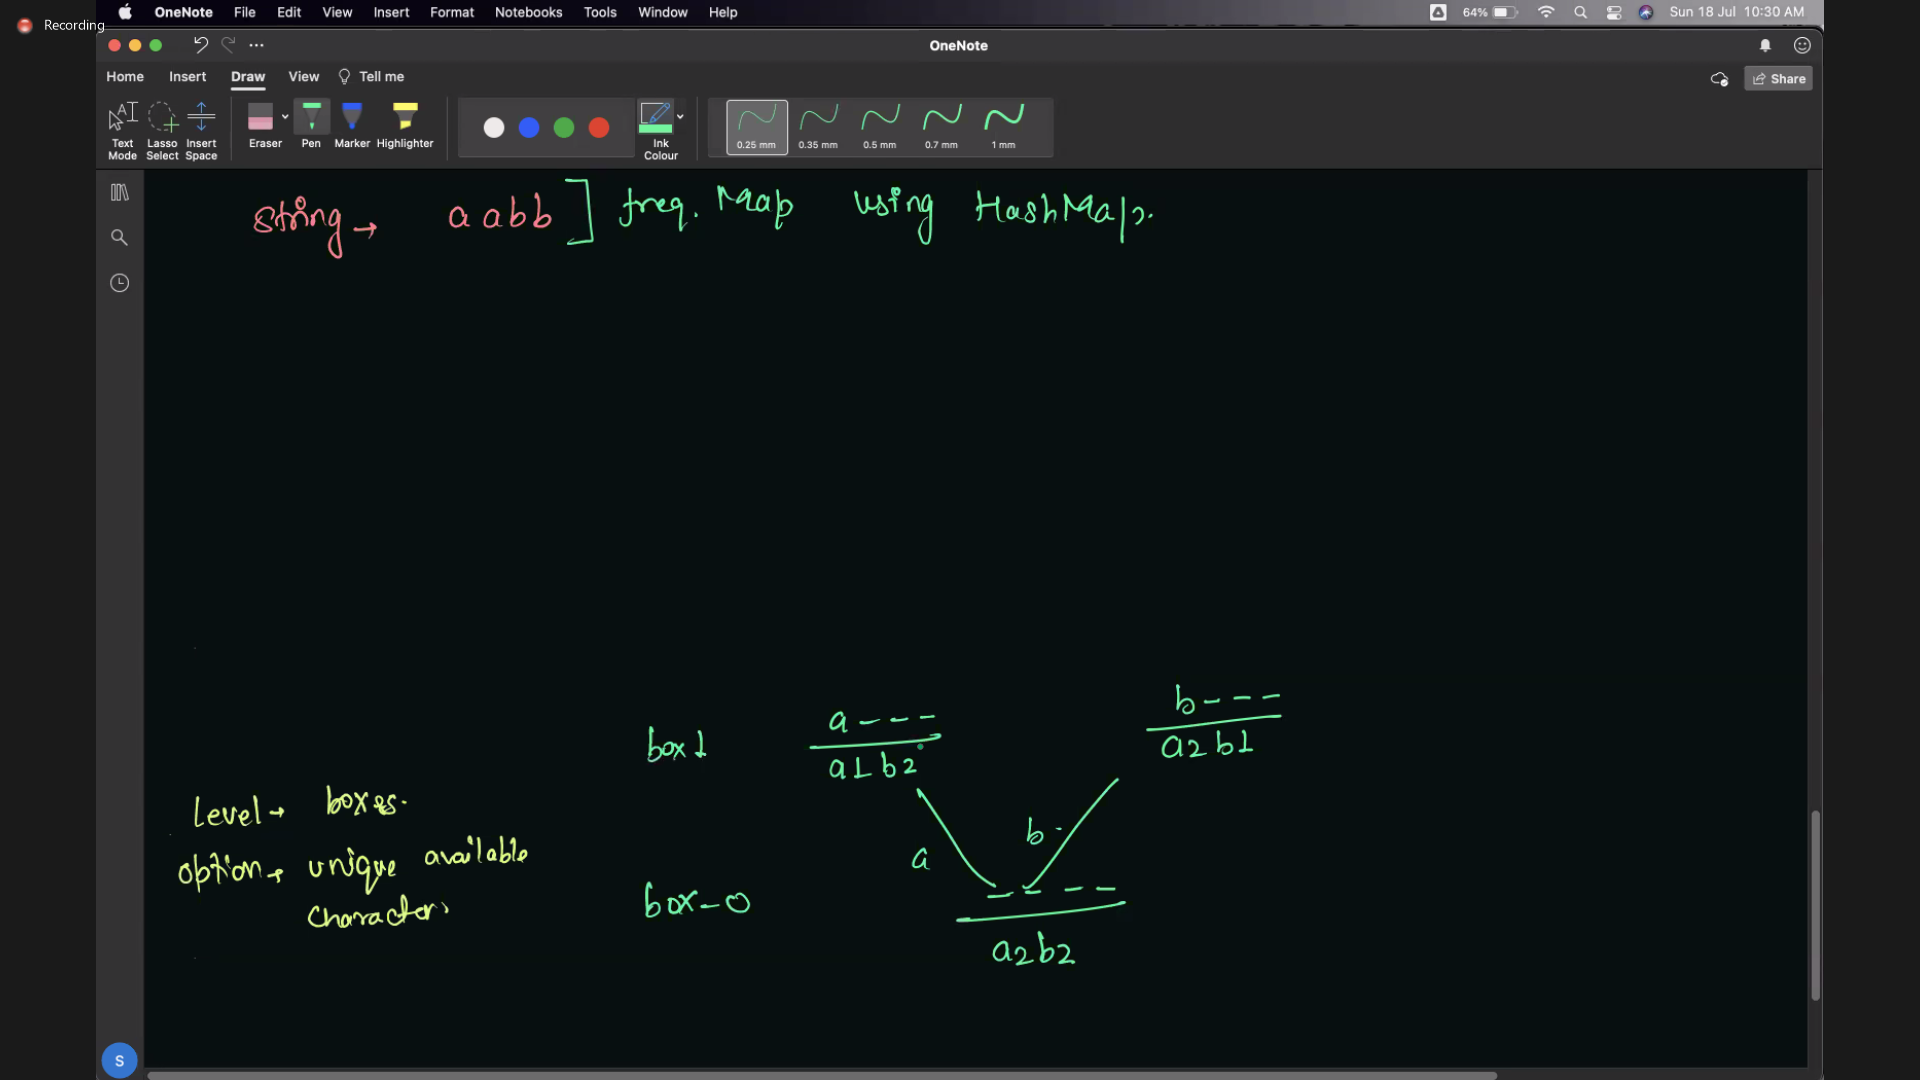 Recording
OneNote File Edit View Insert Format Notebooks Tools Window Help 64% Sun 18 Jul 10:30 AM
OneNote
Home Insert Draw View Tell me Share
Text Mode Lasso Select Insert Space Eraser Pen Marker Highlighter Ink Colour 0.25 mm 0.35 mm 0.5 mm 0.7 mm 1 mm
string → a a b b ] freq. Map using HashMap.
b - - -
a - - -
box 1 a1 b2 a2 b1
level → boxes.
b.
option → unique available a
character
box - 0 - - - -
a2b2
S